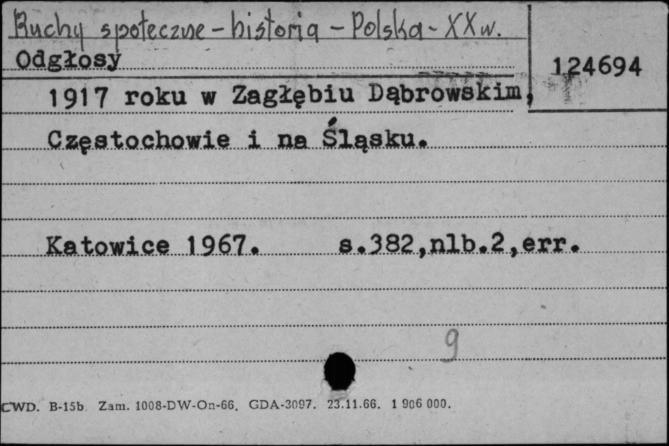 Ruchy społeczne - historia - Polska - XX w.
Odgłosy
124694
1917 roku w Zagłębiu Dąbrowskim,
Częstochowie i na Śląsku.
Katowice 1967. s.382,nlb.2,err.
9
CWD. B-15b Zam. 1008-DW-On-66. GDA-3097. 23.11.66. 1 906 000.